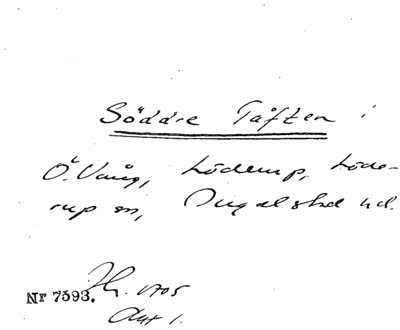 Söddre Tåften i
Ö. Vång, Löderup, Löde-
rup sn, Ingelstad hd.
Nr 7593. Hg. 1705
Akt 1.